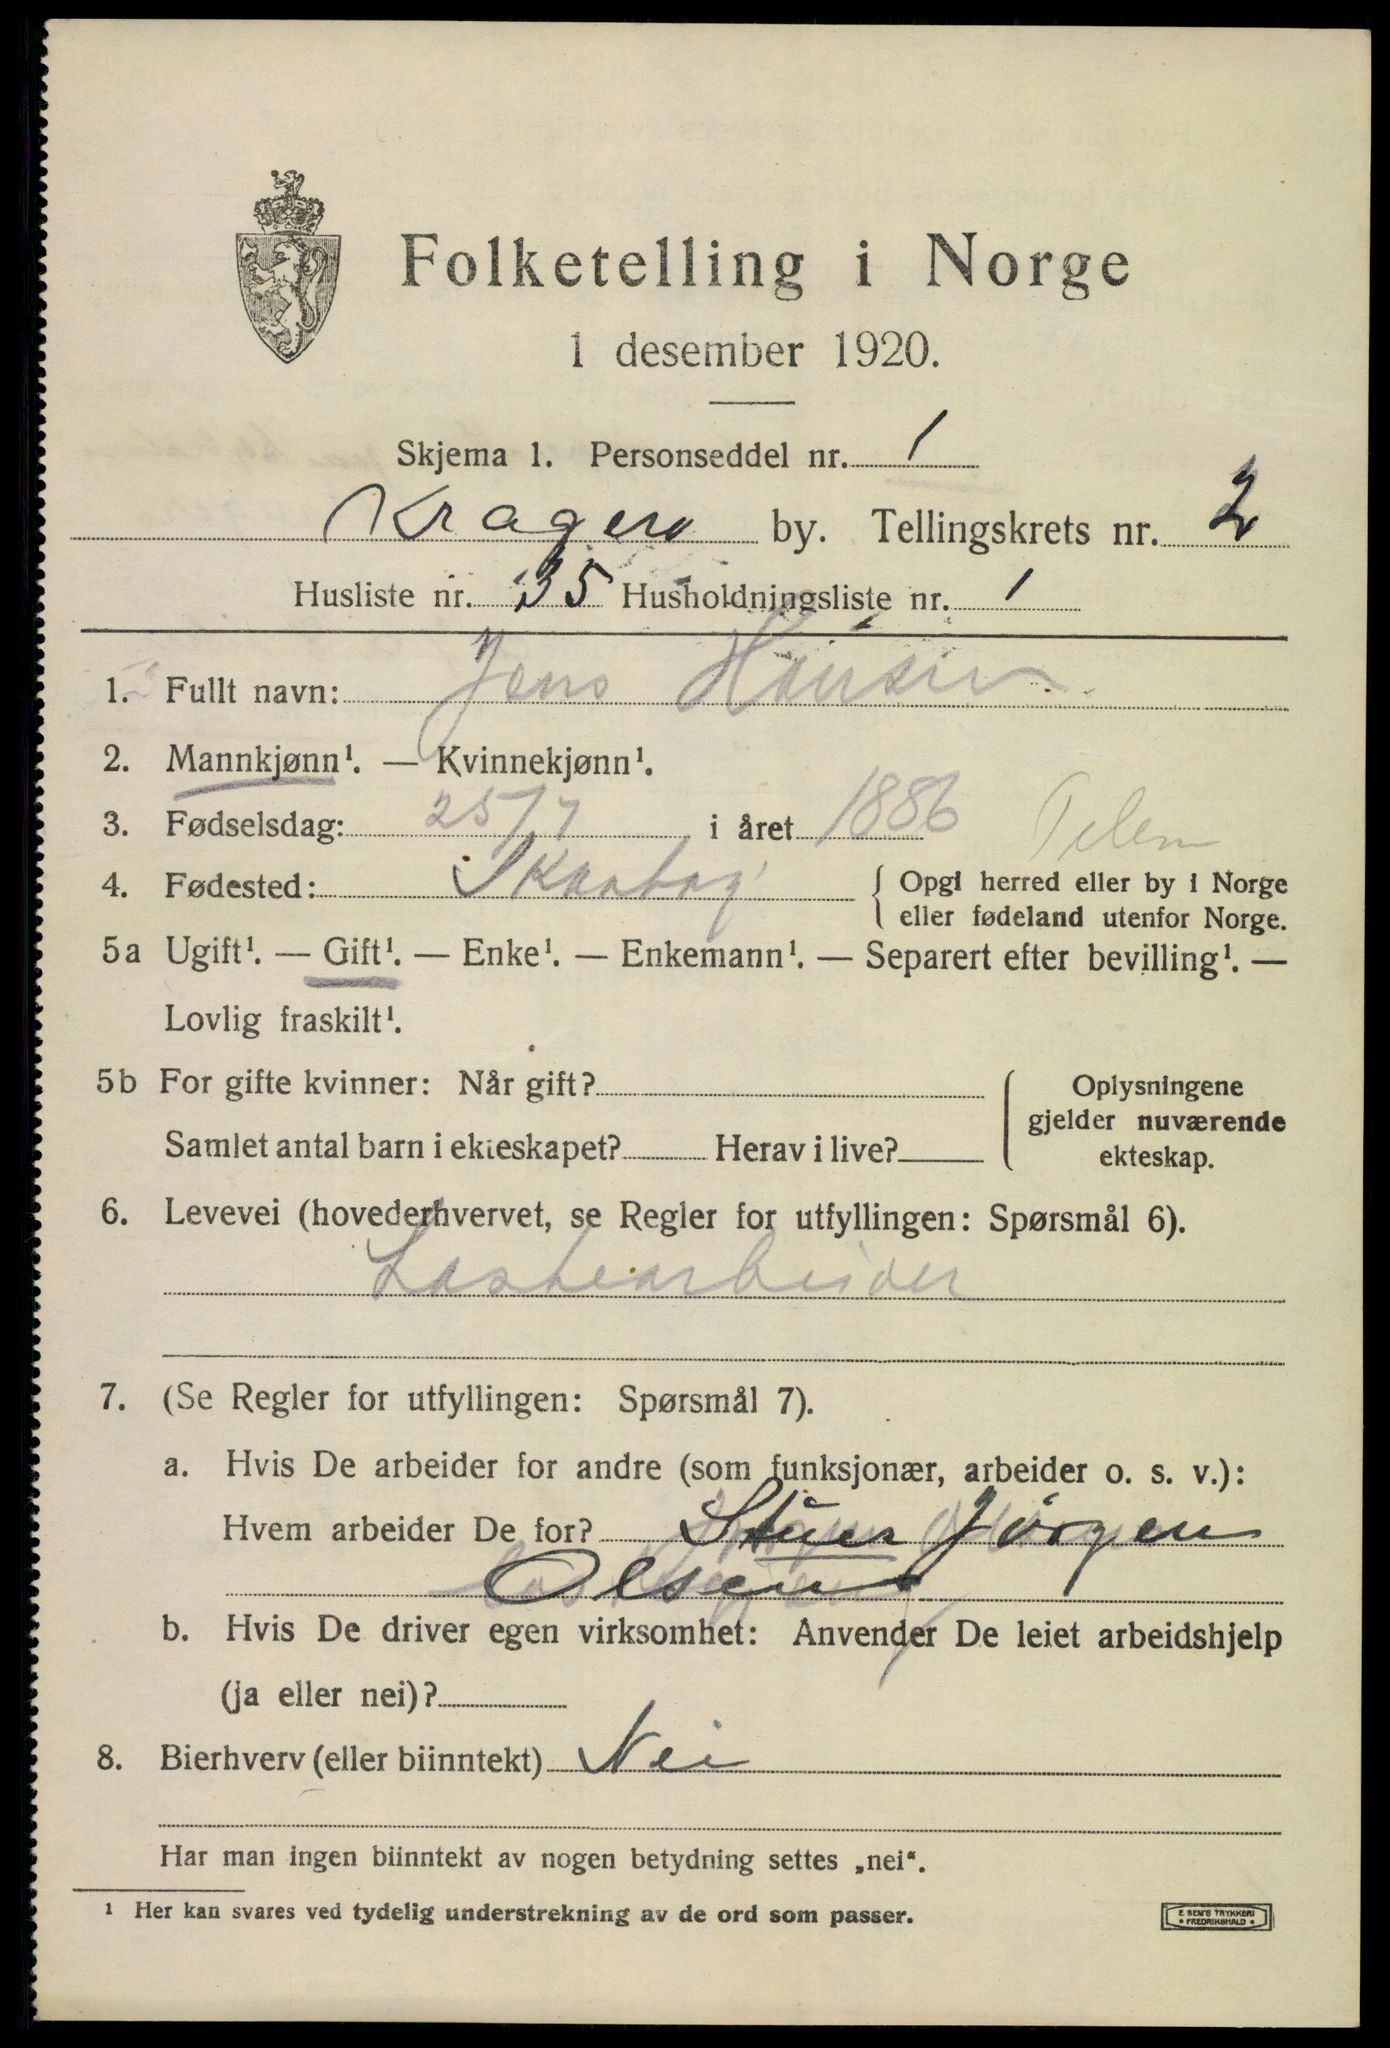 Folketelling i Norge
1 desember 1920.
Skjema 1. Personseddel nr. 1
Kragerø by. Tellingskrets nr. 2
Husliste nr. 35 Husholdningsliste nr. 1
1. Fullt navn: Jens Hansen
2. Mannkjønn¹. — Kvinnekjønn¹.
3. Fødselsdag: 25/7 i året 1886
Telem
4. Fødested: Skaabøy { Opgi herred eller by i Norge
eller fødeland utenfor Norge.
5a Ugift¹. — Gift¹. — Enke¹. — Enkemann¹. — Separert efter bevilling¹. —
Lovlig fraskilt¹.
5b For gifte kvinner: Når gift? Oplysningene
gjelder nuværende
Samlet antal barn i ekteskapet? Herav i live?
ekteskap.
6. Levevei (hovederhvervet, se Regler for utfyllingen: Spørsmål 6).
Lastearbeider
7. (Se Regler for utfyllingen: Spørsmål 7).
a. Hvis De arbeider for andre (som funksjonær, arbeider o. s. v.):
Hvem arbeider De for? Stuer Jørgen
Olsen
b. Hvis De driver egen virksomhet: Anvender De leiet arbeidshjelp
(ja eller nei)?
8. Bierhverv (eller biinntekt) Nei
Har man ingen biinntekt av nogen betydning settes „nei“.
¹ Her kan svares ved tydelig understrekning av de ord som passer.
E. SEM'S TRYKKERI
• FREDRIKSHALD •